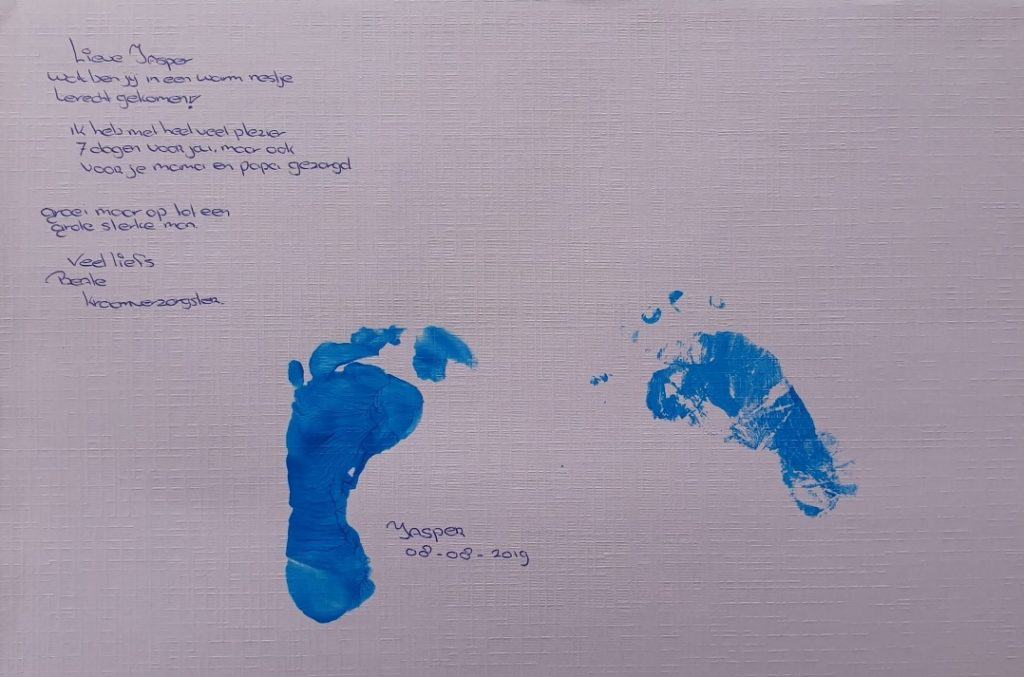 Lieve Jasper
wat ben jij in een warm nestje
terecht gekomen!
ik heb met heel veel plezier
7 dagen voor jou, maar ook
voor je mama en papa gezorgd
groei maar op tot een
grote sterke man.
Veel liefs
kraamverzorgster.
Jasper
08-08-2019